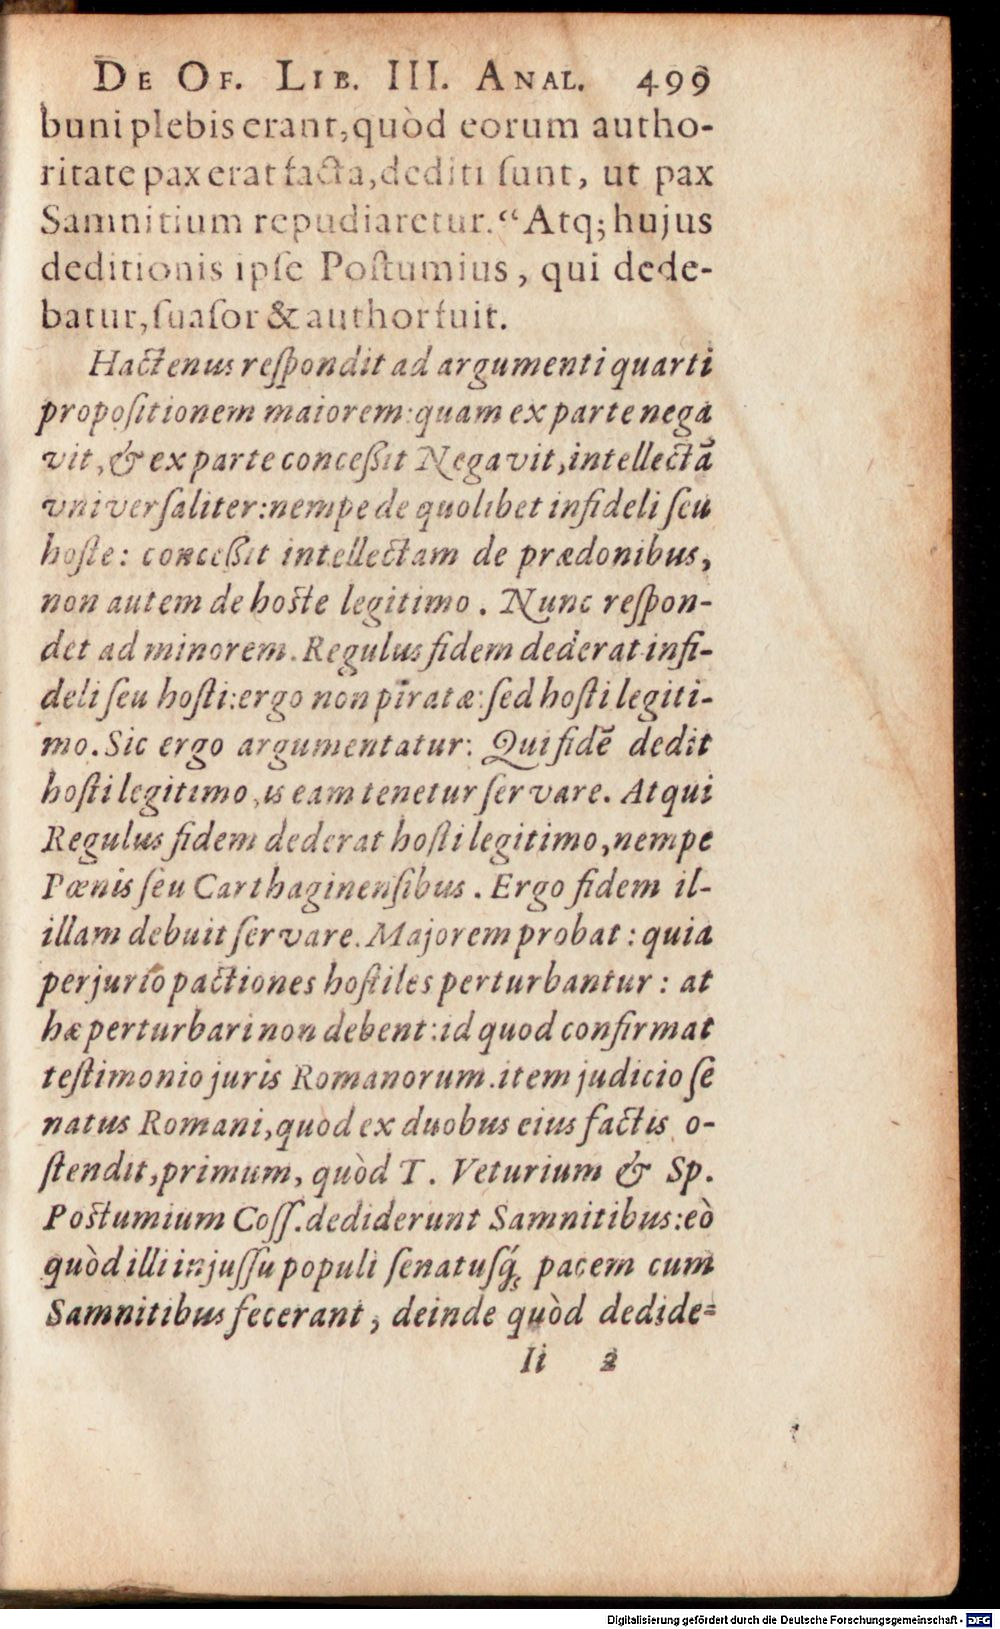 DE OF. LIB. III. ANAL. 499
buni plebis erant, quòd eorum autho-
ritate pax erat facta, dediti ſunt, ut pax
Samnitium repudiaretur. “Atq; hujus
deditionis ipſe Poſtumius, qui dede-
batur, ſuaſor & author fuit.
Hactenus reſpondit ad argumenti quarti
propoſitionem maiorem: quam ex parte nega
vit, & ex parte conceßit Negavit, intellectā
vniverſaliter: nempe de quolibet infideli ſeu
hoſte: conceßit intellectam de prædonibus,
non autem de hoste legitimo. Nunc reſpon-
det ad minorem. Regulus fidem dederat infi-
deli ſeu hoſti: ergo non piratæ: ſed hoſti legiti-
mo. Sic ergo argumentatur: Qui fidē dedit
hoſti legitimo, is eam tenetur ſervare. Atqui
Regulus fidem dederat hoſti legitimo, nempe
Pœnis ſeu Carthaginenſibus. Ergo fidem il-
illam debuit ſervare. Majorem probat: quia
perjurio pactiones hoſtiles perturbantur: at
hæ perturbari non debent: id quod confirmat
teſtimonio juris Romanorum. item judicio ſe
natus Romani, quod ex duobus eius factis o-
ſtendit, primum, quòd T. Veturium & Sp.
Postumium Coſſ. dediderunt Samnitibus: eò
quòd illi injuſſu populi ſenatuſq́; pacem cum
Samnitibus fecerant, deinde quòd dedide-
Ii 2
Digitalisierung gefördert durch die Deutsche Forschungsgemeinschaft - DFG